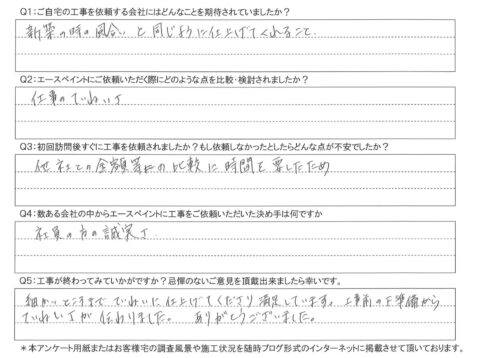 Q1：ご自宅の工事を依頼する会社にはどんなことを期待されていましたか？
新築の時の風合いと同じように仕上げてくれること
Q2：エースペイントにご依頼いただく際にどのような点を比較・検討されましたか？
仕事のていねいさ
Q3：初回訪問後すぐに工事を依頼されましたか？もし依頼しなかったとしたらどんな点が不安でしたか？
他社との金額等の比較に時間を要したため
Q4：数ある会社の中からエースペイントに工事をご依頼いただいた決め手は何ですか
社員の方の誠実さ
Q5：工事が終わってみていかがですか？忌憚のないご意見を頂戴出来ましたら幸いです。
細かいところまでていねいに仕上げてくださり満足しています。工事前の下準備から
ていねいさが伝わりました。 ありがとうございました。
＊本アンケート用紙またはお客様宅の調査風景や施工状況を随時ブログ形式のインターネットに掲載させて頂いております。